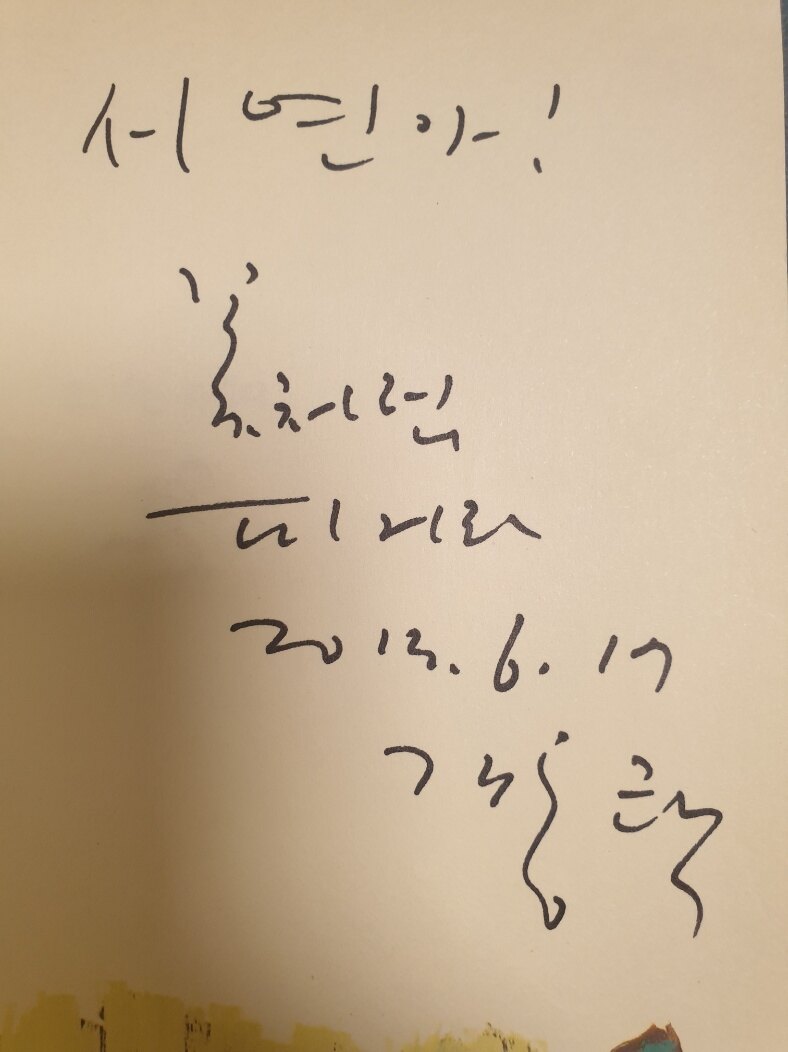 서연아!
꽃처럼
피거라
2013. 6. 17
김용택